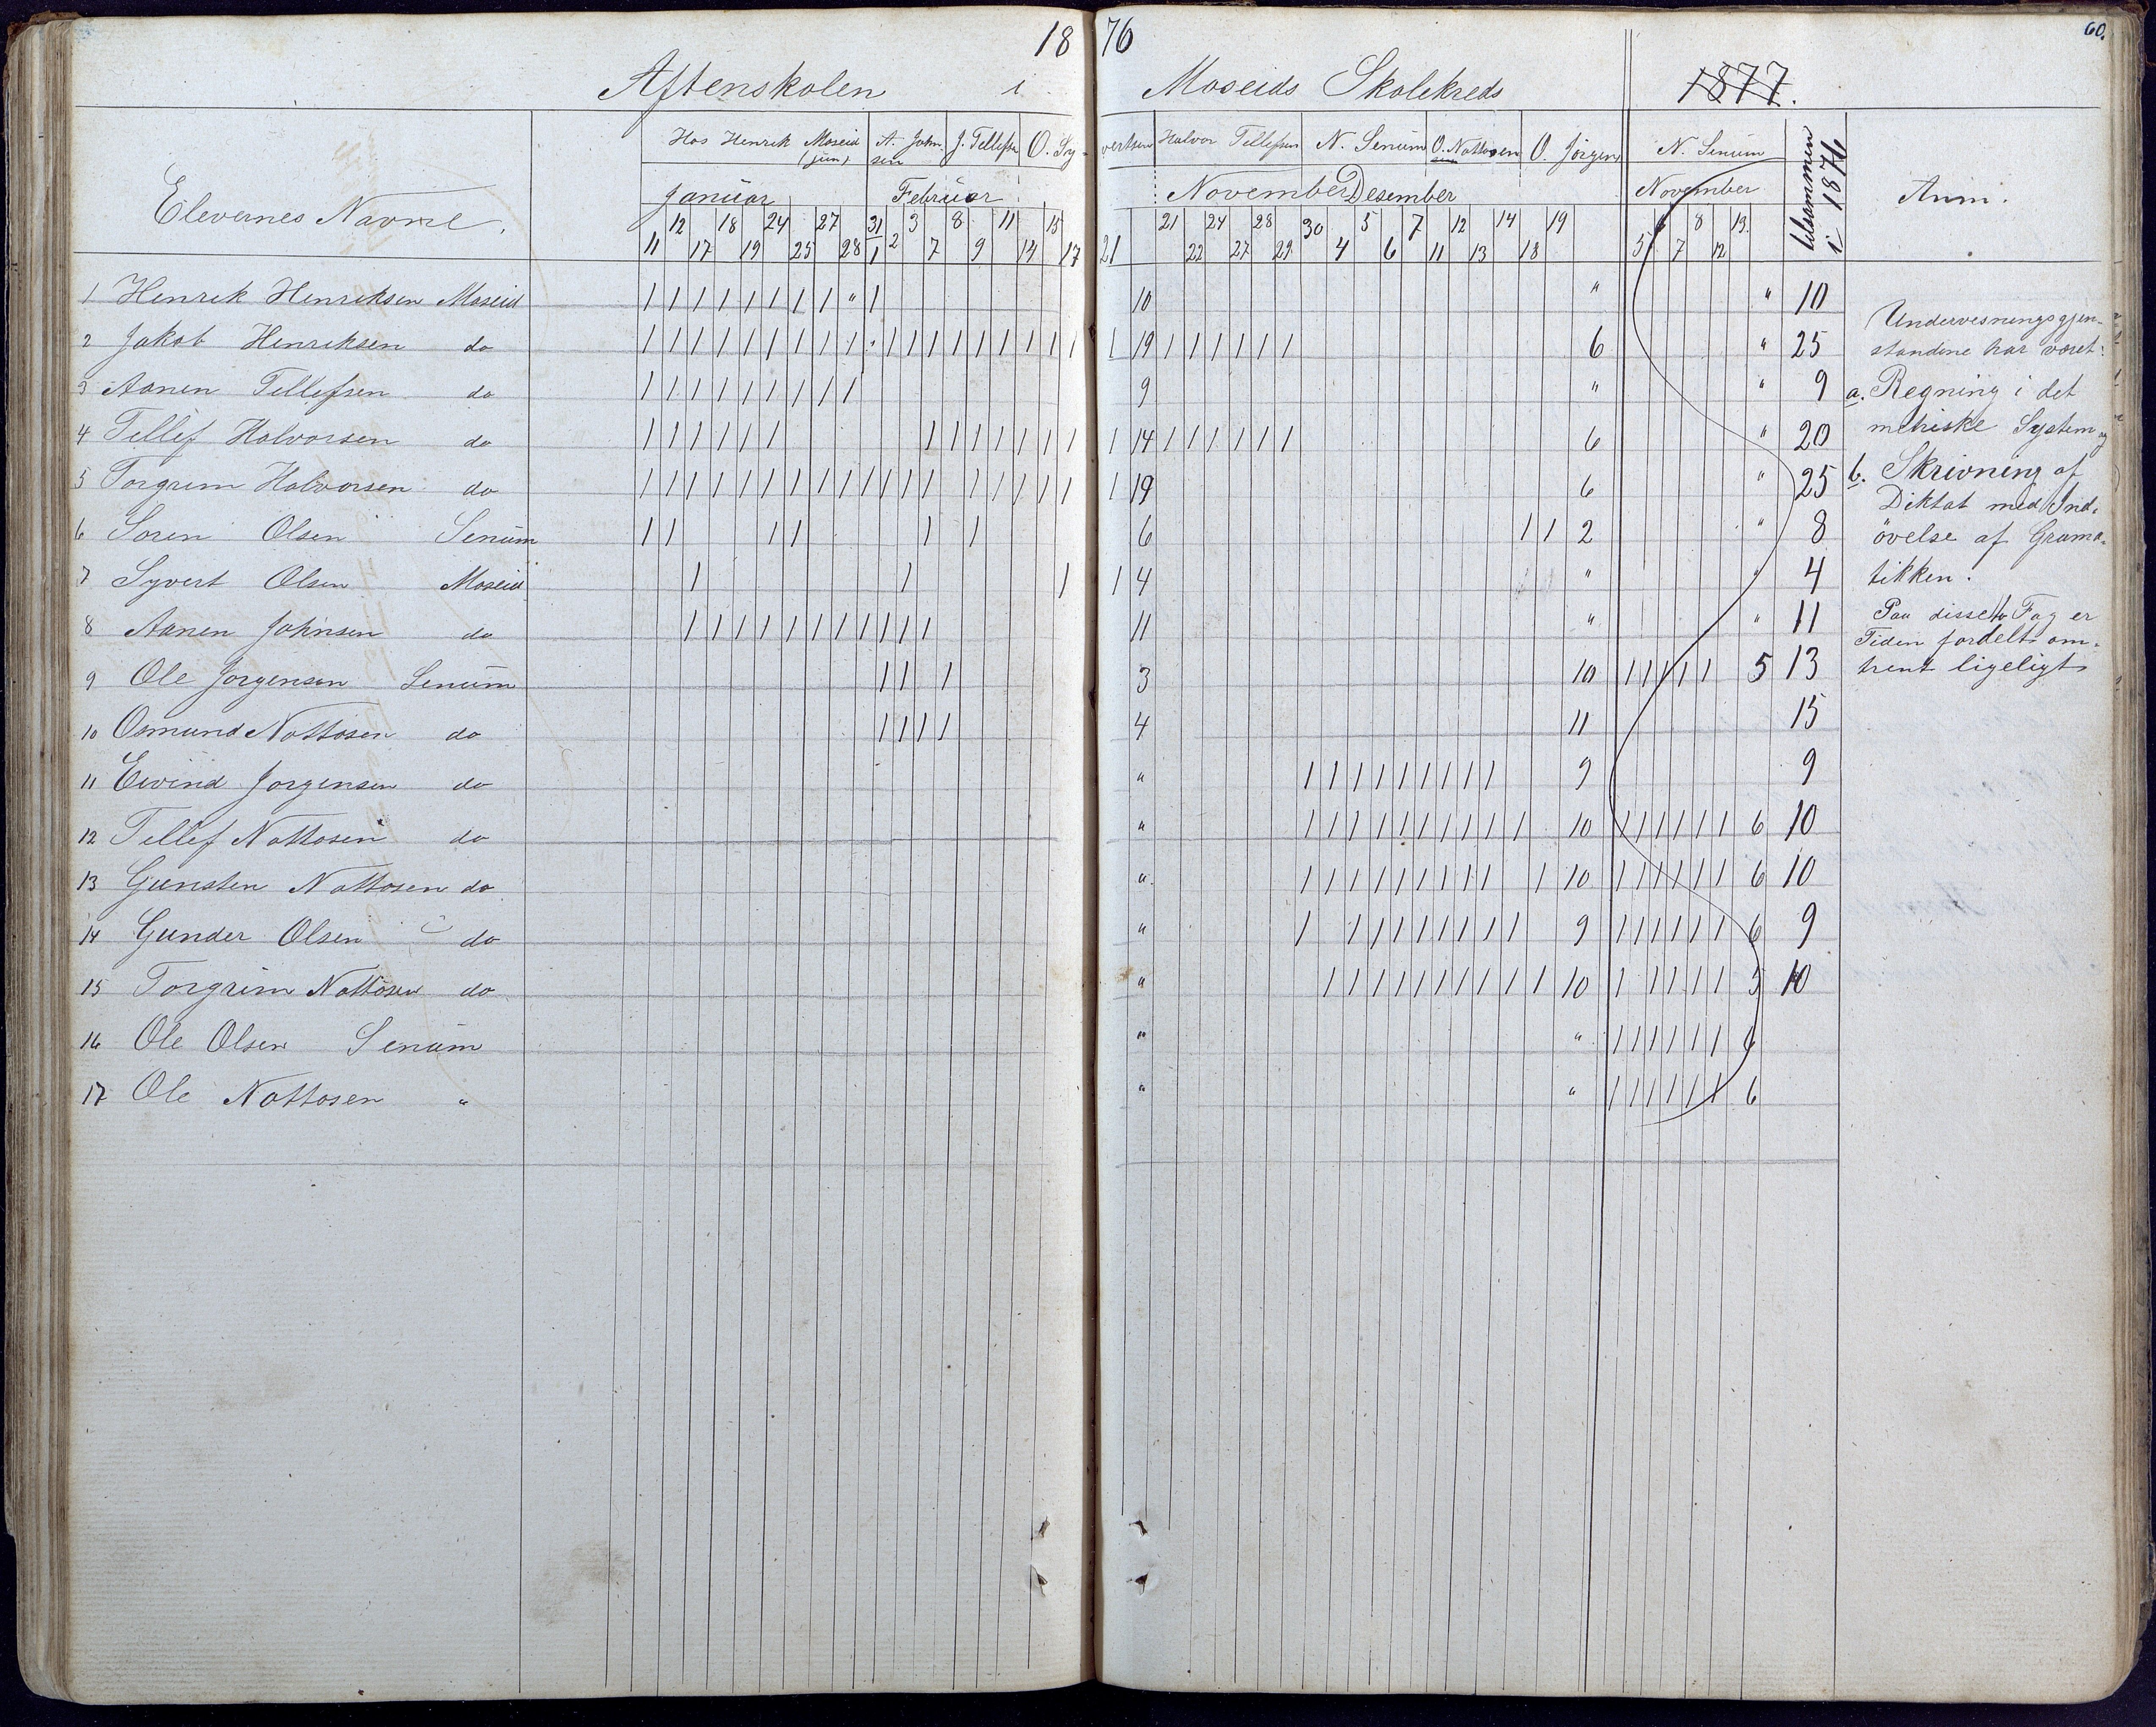 18 76
60.
Aftenskolen i Moseids Skolekreds 1877.
Elevernes Navne.
Hos Henrik Moseid (jun) A. Johnsen J. Tellefsen O. Syvertsen Halvor Tellefsen N. Senum O. Nottosen O. Jörgens N. Senum tilsammen i 1876 Anm.
Januar Februar November Desember November
12 18 24 27 31 3 8 11 15 21 24 28 30 5 7 12 14 19 6 8 13
11 17 19 25 28 1 2 7 9 14 17 21 22 27 29 4 6 11 13 18 5 7 12
1 Henrik Henriksen Moseid | | | | | | | | " | 10 " " 10
2 Jakob Henriksen do | | | | | | | | | | | | | | | | | | | 19 | | | | | | 6 " 25
3 Aanen Tellefsen do | | | | | | | | | 9 " " 9
4 Tellef Halvorsen do | | | | | | | | | | | | | | 14 | | | | | | 6 " 20
5 Torgrim Halvorsen do | | | | | | | | | | | | | | | | | | | 19 6 " 25
6 Soren Olsen Senum | | | | | | 6 | | 2 " 8
7 Syvert Olsen Moseid | | | | 4 " " 4
8 Aanen Johnsen do | | | | | | | | | | | 11 " " 11
9 Ole Jorgensen Senum | | | 3 10 | | | | | 5 13
10 Osmund Nottosen do | | | | 4 11 15
11 Eivind Jorgensen do " | | | | | | | | | 9 9
12 Tellef Nottosen do " | | | | | | | | | | 10 | | | | | | 6 10
13 Gunsten Nottosen do " | | | | | | | | | | 10 | | | | | | 6 10
14 Gunder Olsen do " | | | | | | | | | 9 | | | | | | 6 9
15 Torgrim Nottosen do " | | | | | | | | | | 10 | | | | | 5 10
16 Ole Olsen Senum " " | | | | | | 6
17 Ole Nottosen " " " | | | | | | 6
Undervisningsgjen-
standene har været:
a. Regning i det
metriske System og
b. Skrivning af
Diktat med Ind-
övelse af Grama-
tikken.
Paa disse to Fag er
Tiden fordelt om-
trent ligeligt